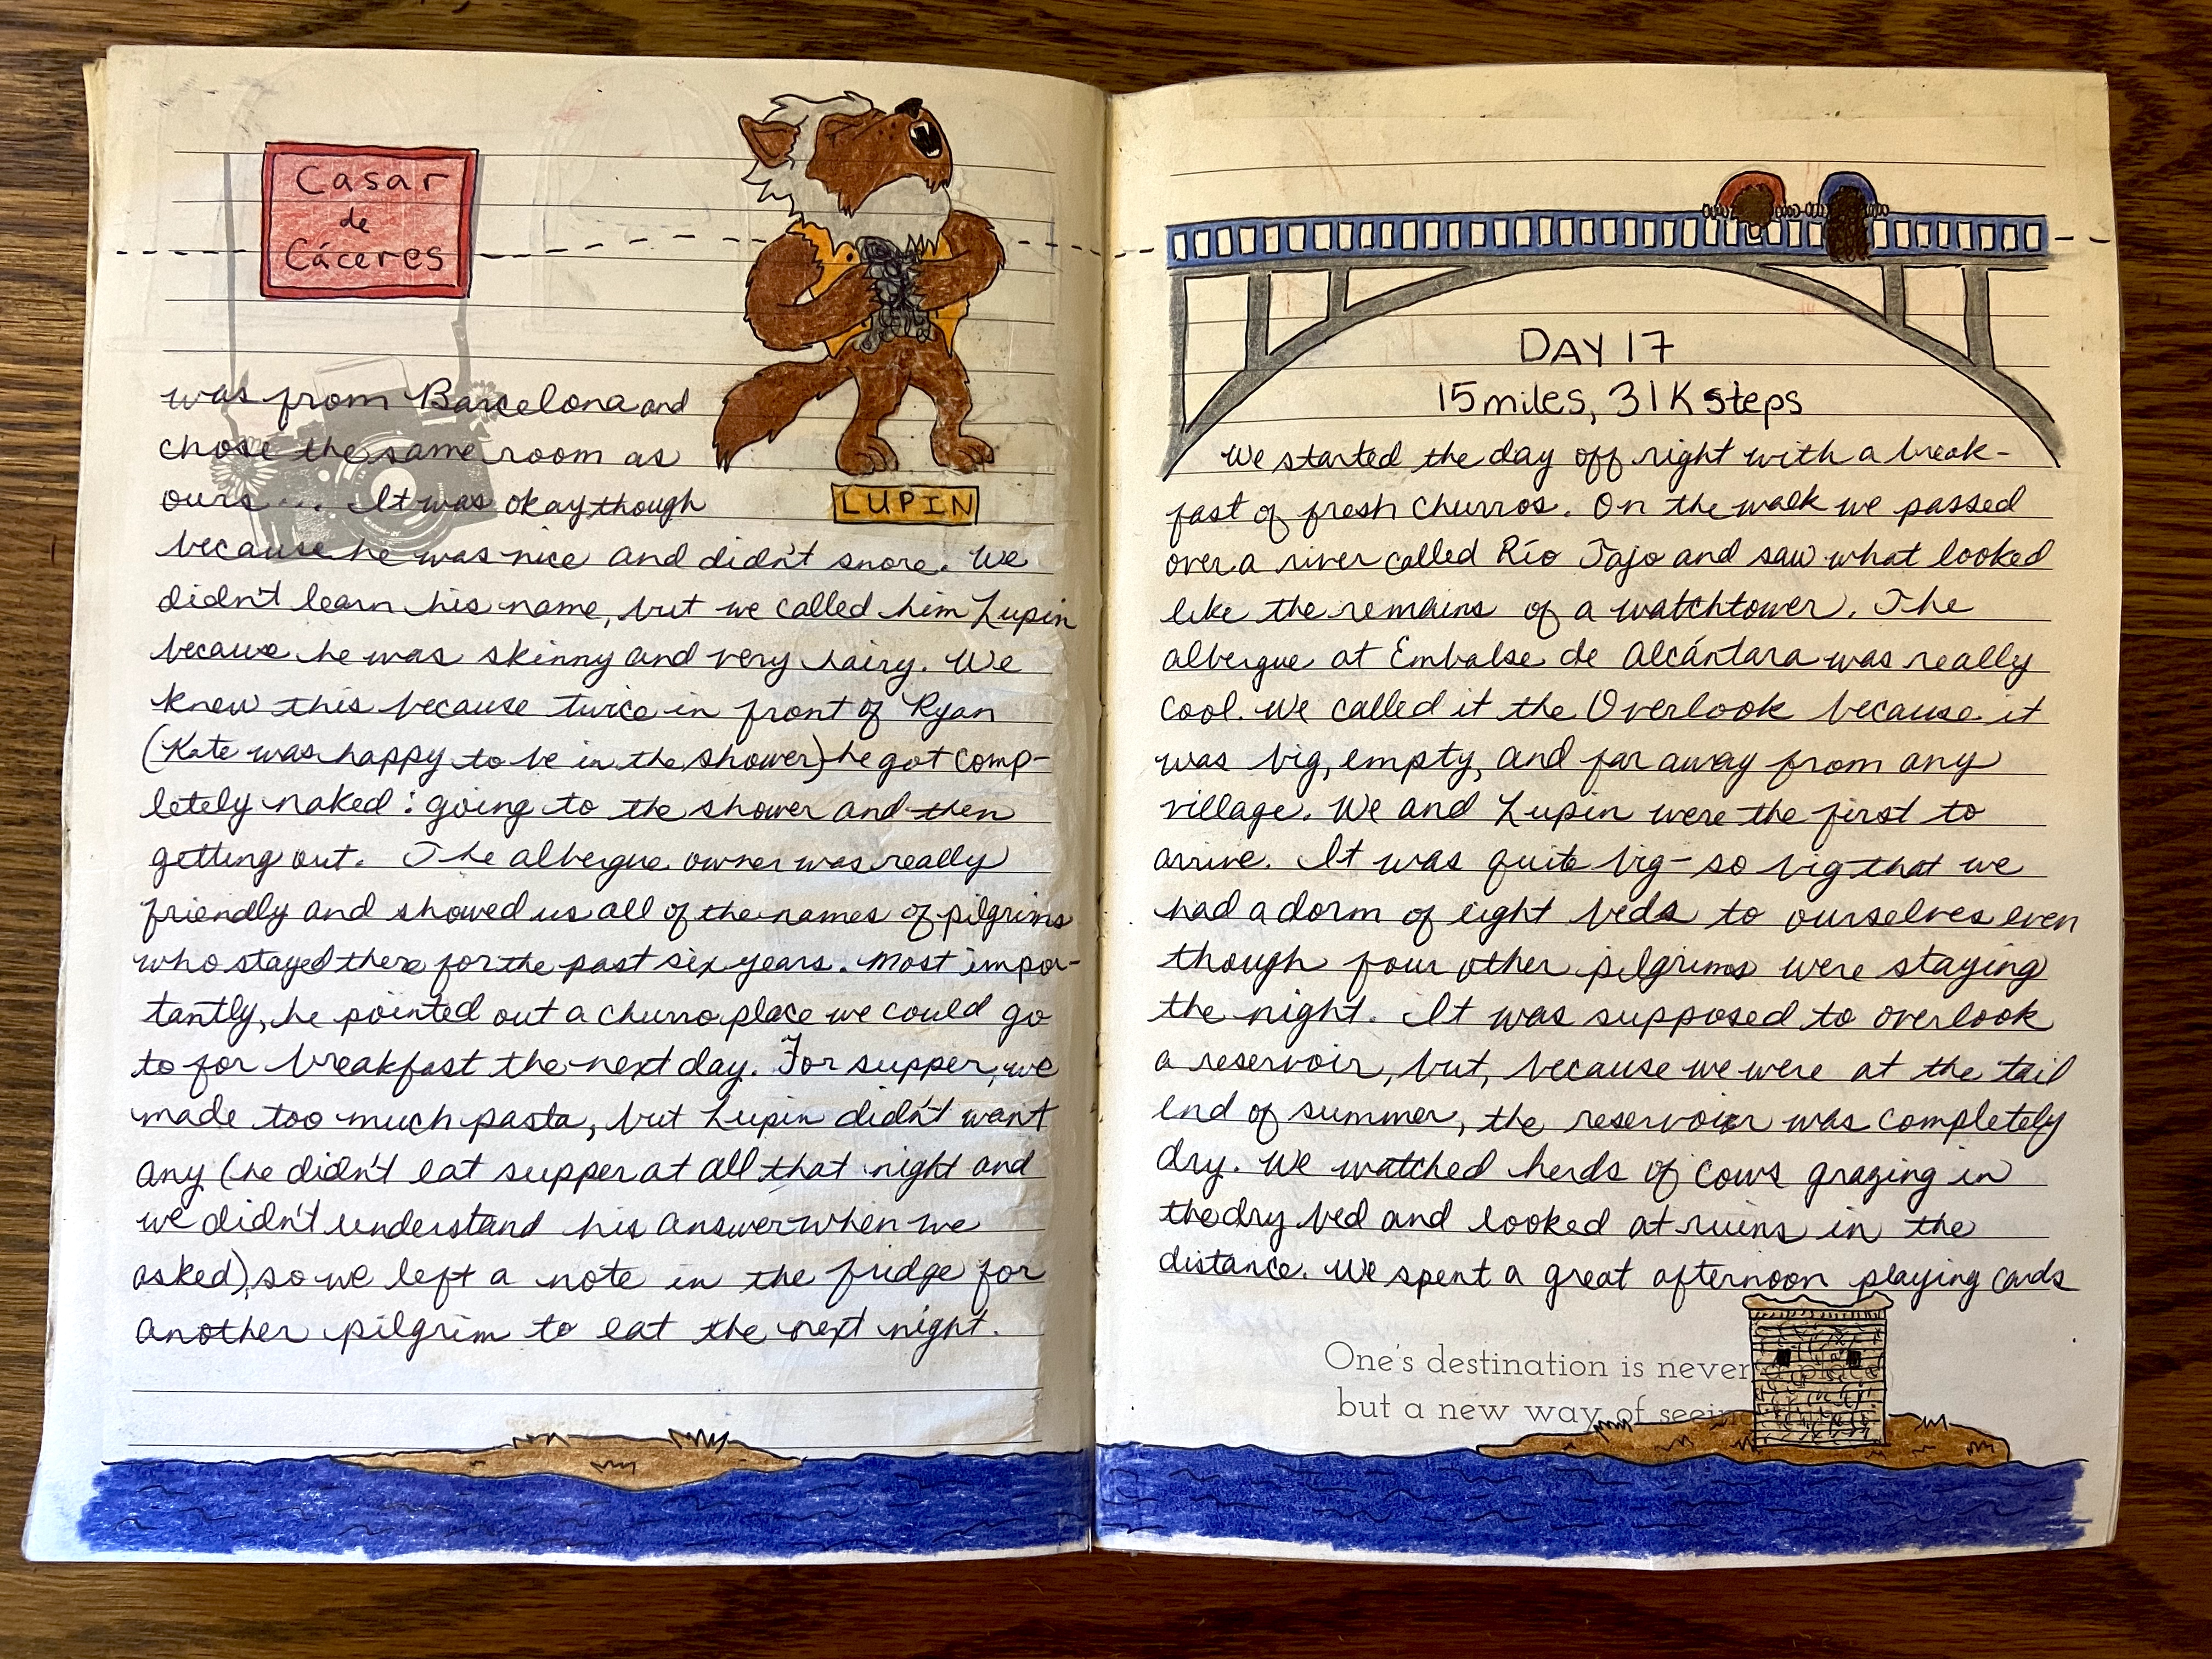 Casar
de
Cáceres
LUPIN
was from Barcelona and
chose the same room as
ours... It was okay though
because he was nice and didn't snore. We
didn't learn his name, but we called him Lupin
because he was skinny and very hairy. We
knew this because twice in front of Ryan
(Kate was happy to be in the shower) he got comp-
letely naked: going to the shower and then
getting out. The albergue owner was really
friendly and showed us all of the names of pilgrims
who stayed there for the past six years. Most impor-
tantly, he pointed out a churro place we could go
to for breakfast the next day. For supper, we
made too much pasta, but Lupin didn't want
any (he didn't eat supper at all that night and
we didn't understand his answer when we
asked), so we left a note in the fridge for
another pilgrim to eat the next night.
DAY 17
15 miles, 31K steps
We started the day off right with a break-
fast of fresh churros. On the walk we passed
over a river called Río Tajo and saw what looked
like the remains of a watchtower. The
albergue at Embalse de Alcántara was really
cool. We called it the Overlook because it
was big, empty, and far away from any
village. We and Lupin were the first to
arrive. It was quite big- so big that we
had a dorm of eight beds to ourselves even
though four other pilgrims were staying
the night. It was supposed to overlook
a reservoir, but, because we were at the tail
end of summer, the reservoir was completely
dry. We watched herds of cows grazing in
the dry bed and looked at ruins in the
distance. We spent a great afternoon playing cards
One's destination is never a place
but a new way of seeing